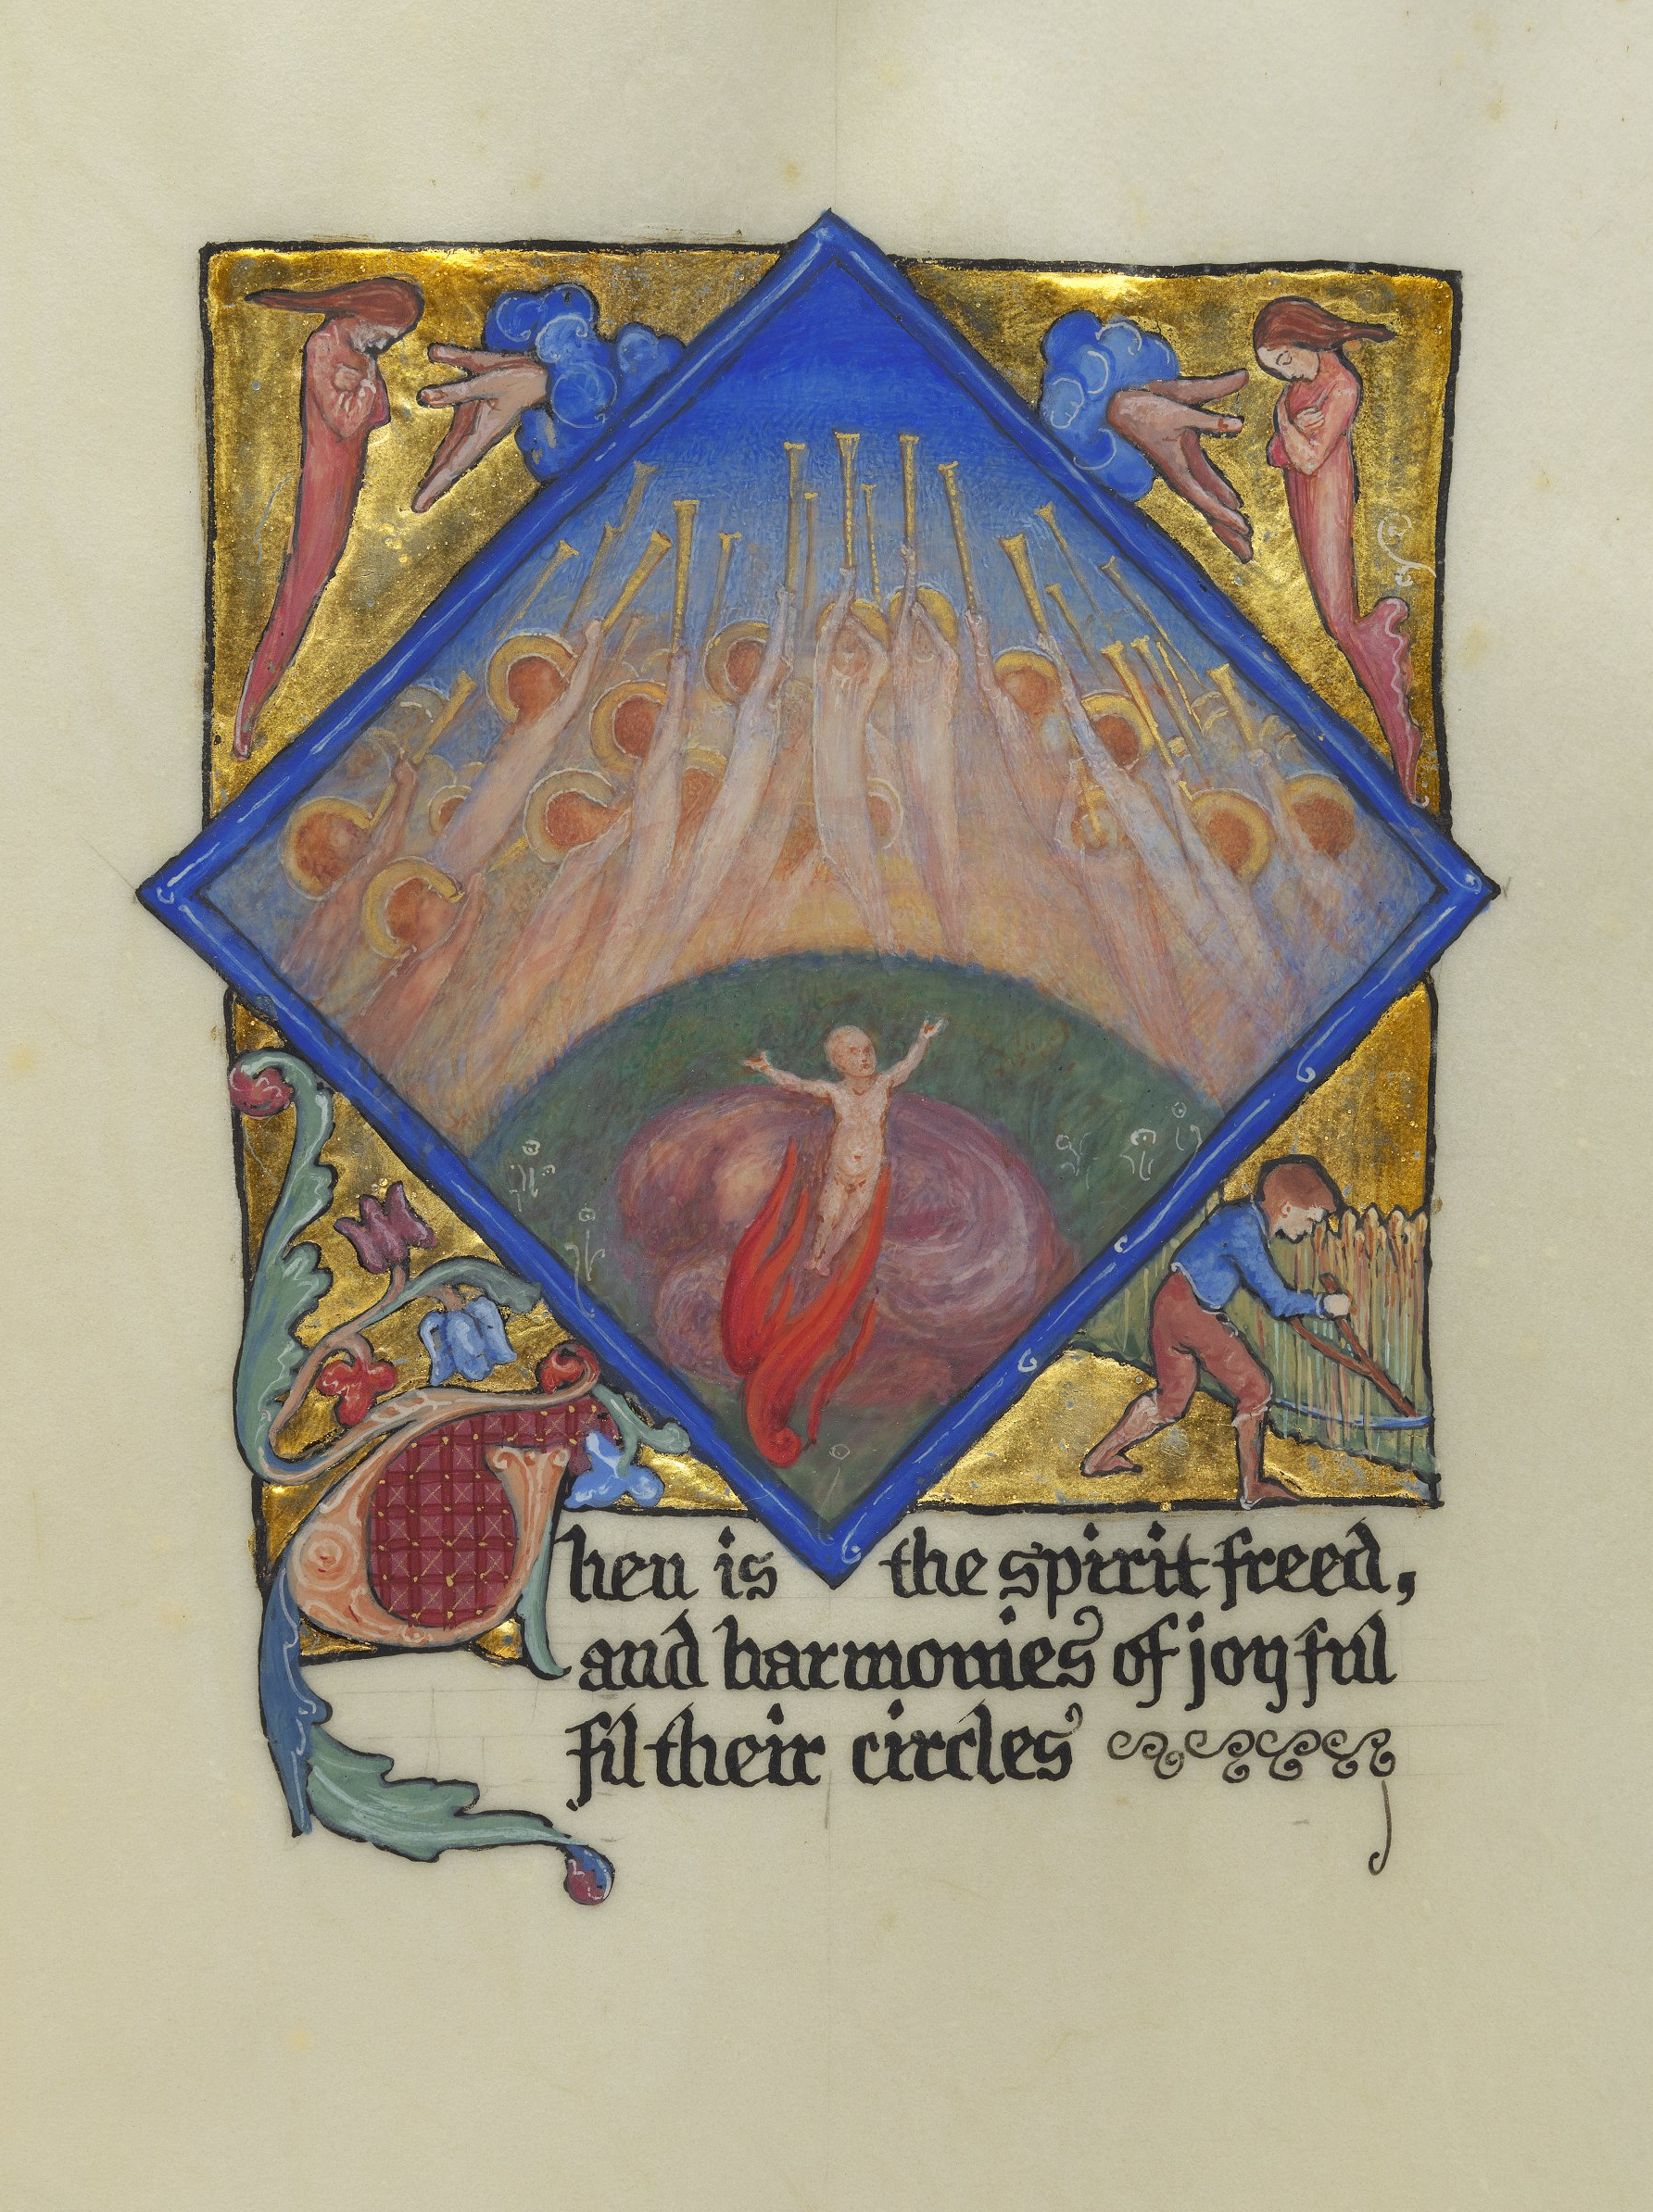 Then is the spirit freed,
and harmonies of joy ful
fil their circles